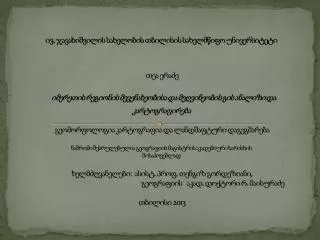 ივ. ჯავახიშვილის სახელობის თბილისის სახელმწიფო უნივერსიტეტი
თეა ერაძე
იმერეთის რეგიონის მევენახეობისა და მეღვინეობის გის ანალიზი და
კარტოგრაფირება
გეომორფოლოგია კარტოგრაფია და ლანდშაფტური დაგეგმარება
ნაშრომი შესრულებულია გეოგრაფიის მაგისტრის აკადემიური ხარისხის
მოსაპოვებლად
ხელმძღვანელები: ასისტ. პროფ. თენგიზ გორდეზიანი,
გეოგრაფიის აკად. დოქტორი რ. მაისურაძე
თბილისი 2013